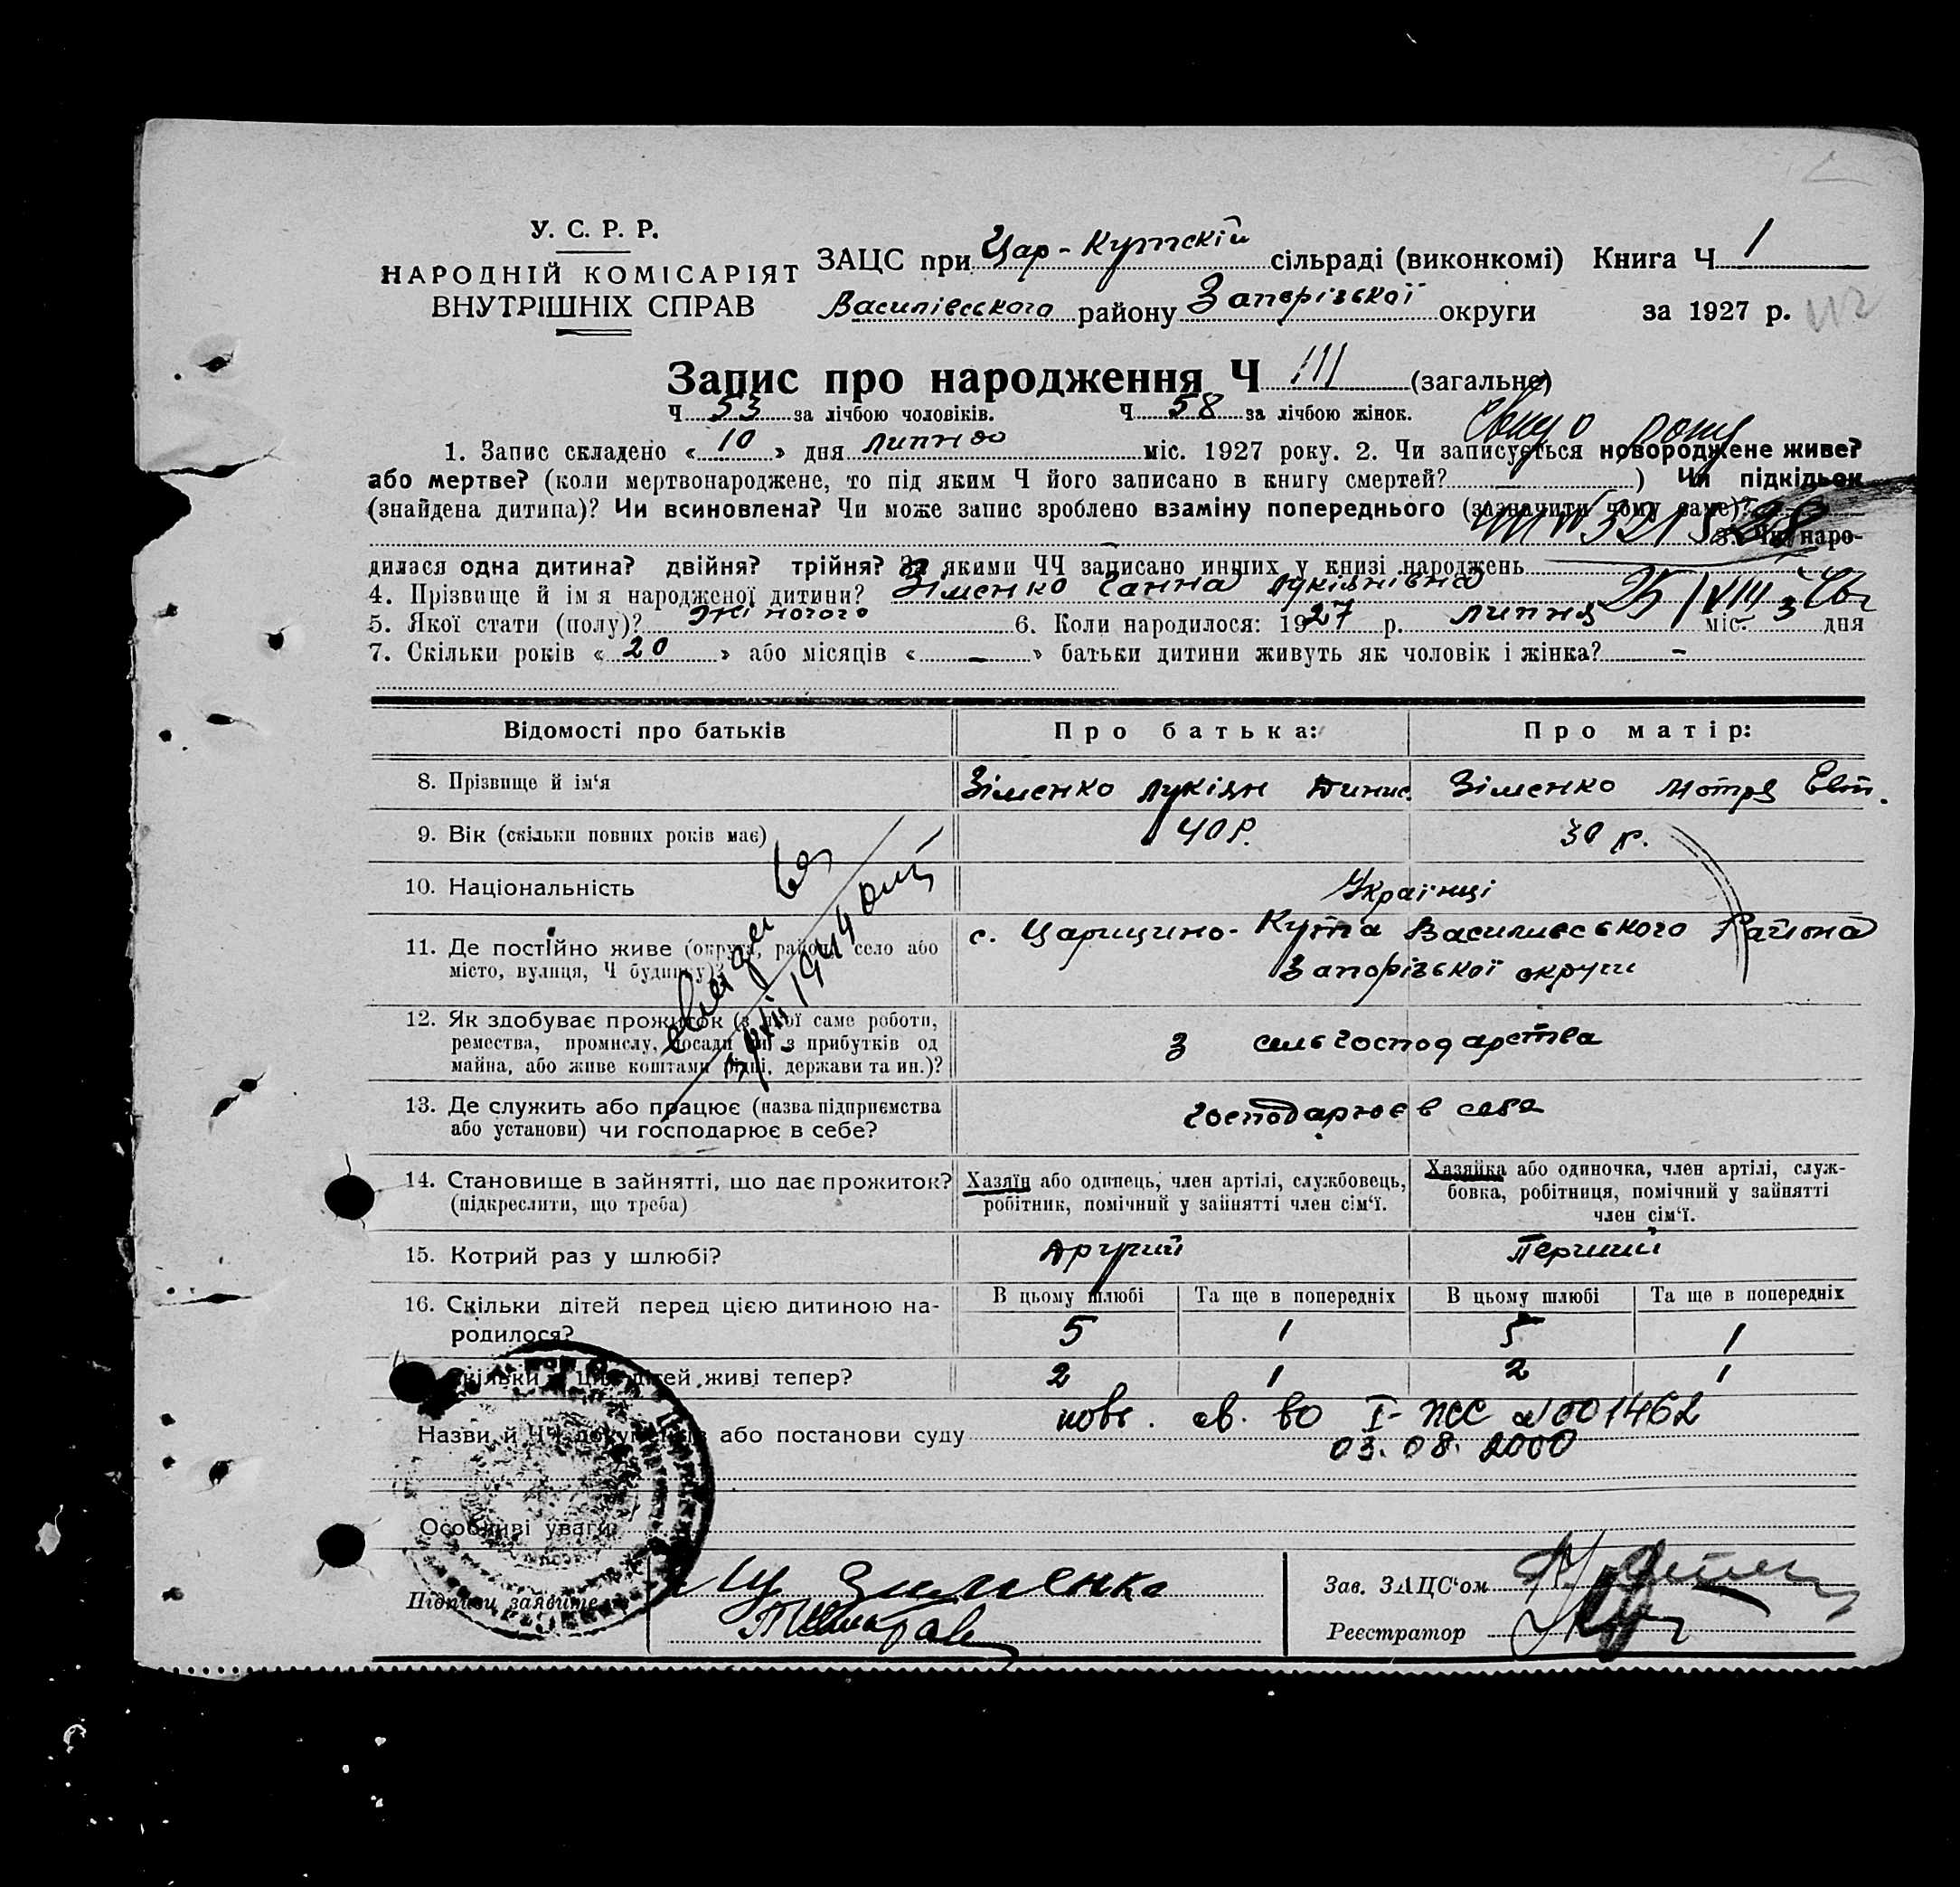 У. С. Р. Р.
НАРОДНІЙ КОМІСАРІЯТ
ВНУТРІШНІХ СПРАВ
ЗАЦС при Цар-Кутскій сільраді (виконкомі) Книга Ч 1
Василівського району Запорізької округи за 1927 р.
Запис про народження Ч 111 (загальне)
Ч 53 за лічбою чоловіків. Ч 58 за лічбою жінок.
1. Запис складено « 10 » дня липня міс. 1927 року. 2. Чи записується новороджене живе?
або мертве? (коли мертвонароджене, то під яким Ч його записано в книгу смертей? — ) Чи підкідьок
(знайдена дитина)? Чи всиновлена? Чи може запис зроблено взаміну попереднього (зазначити чому саме)?
3. Чи наро-
дилася одна дитина? двійня? трійня? За якими ЧЧ записано инших у книзі народжень
4. Прізвище й ім'я народженої дитини? Зіменко Ганна Лукіянівна
25/VIII
5. Якої стати (полу)? жіночого 6. Коли народилося: 1927 р. липня міс. 3 дня
7. Скільки років « 20 » або місяців « — » батьки дитини живуть як чоловік і жінка? —
Відомості про батьків Про батька: Про матір:
8. Прізвище й ім'я Зіменко Лукіян Динис. Зіменко Мотря Евт.
9. Вік (скільки повних років має) 40 р. 30 р.
10. Національність Українці
11. Де постійно живе (округа, район, село або с. Царицино-Кута Василивського Района
місто, вулиця, Ч будинку)? Запорізької округи
12. Як здобуває прожиток (з якої саме роботи,
ремества, промислу, посади чи з прибутків од з сельгосподарства
майна, або живе коштами рідні, держави та ин.)?
13. Де служить або працює (назва підприємства
або установи) чи господарює в себе? господарює в себе
14. Становище в зайнятті, що дає прожиток?
(підкреслити, що треба)
Хазяїн або одинець, член артілі, службовець,
робітник, помічний у зайнятті член сім'ї.
Хазяйка або одиночка, член артілі, служ-
бовка, робітниця, помічний у зайнятті
член сім'ї.
15. Котрий раз у шлюбі? Другий Перший
16. Скільки дітей перед цією дитиною на-
родилося?
В цьому шлюбі Та ще в попередніх В цьому шлюбі Та ще в попередніх
5 1 5 1
Скільки з цих дітей живі тепер? 2 1 2 1
Назви й ЧЧ документів або постанови суду повт. св. во I-ЖС №001462
03.08.2000
Особливі уваги
Підписи заявителів Зименко
Зав. ЗАЦС'ом
Реєстратор